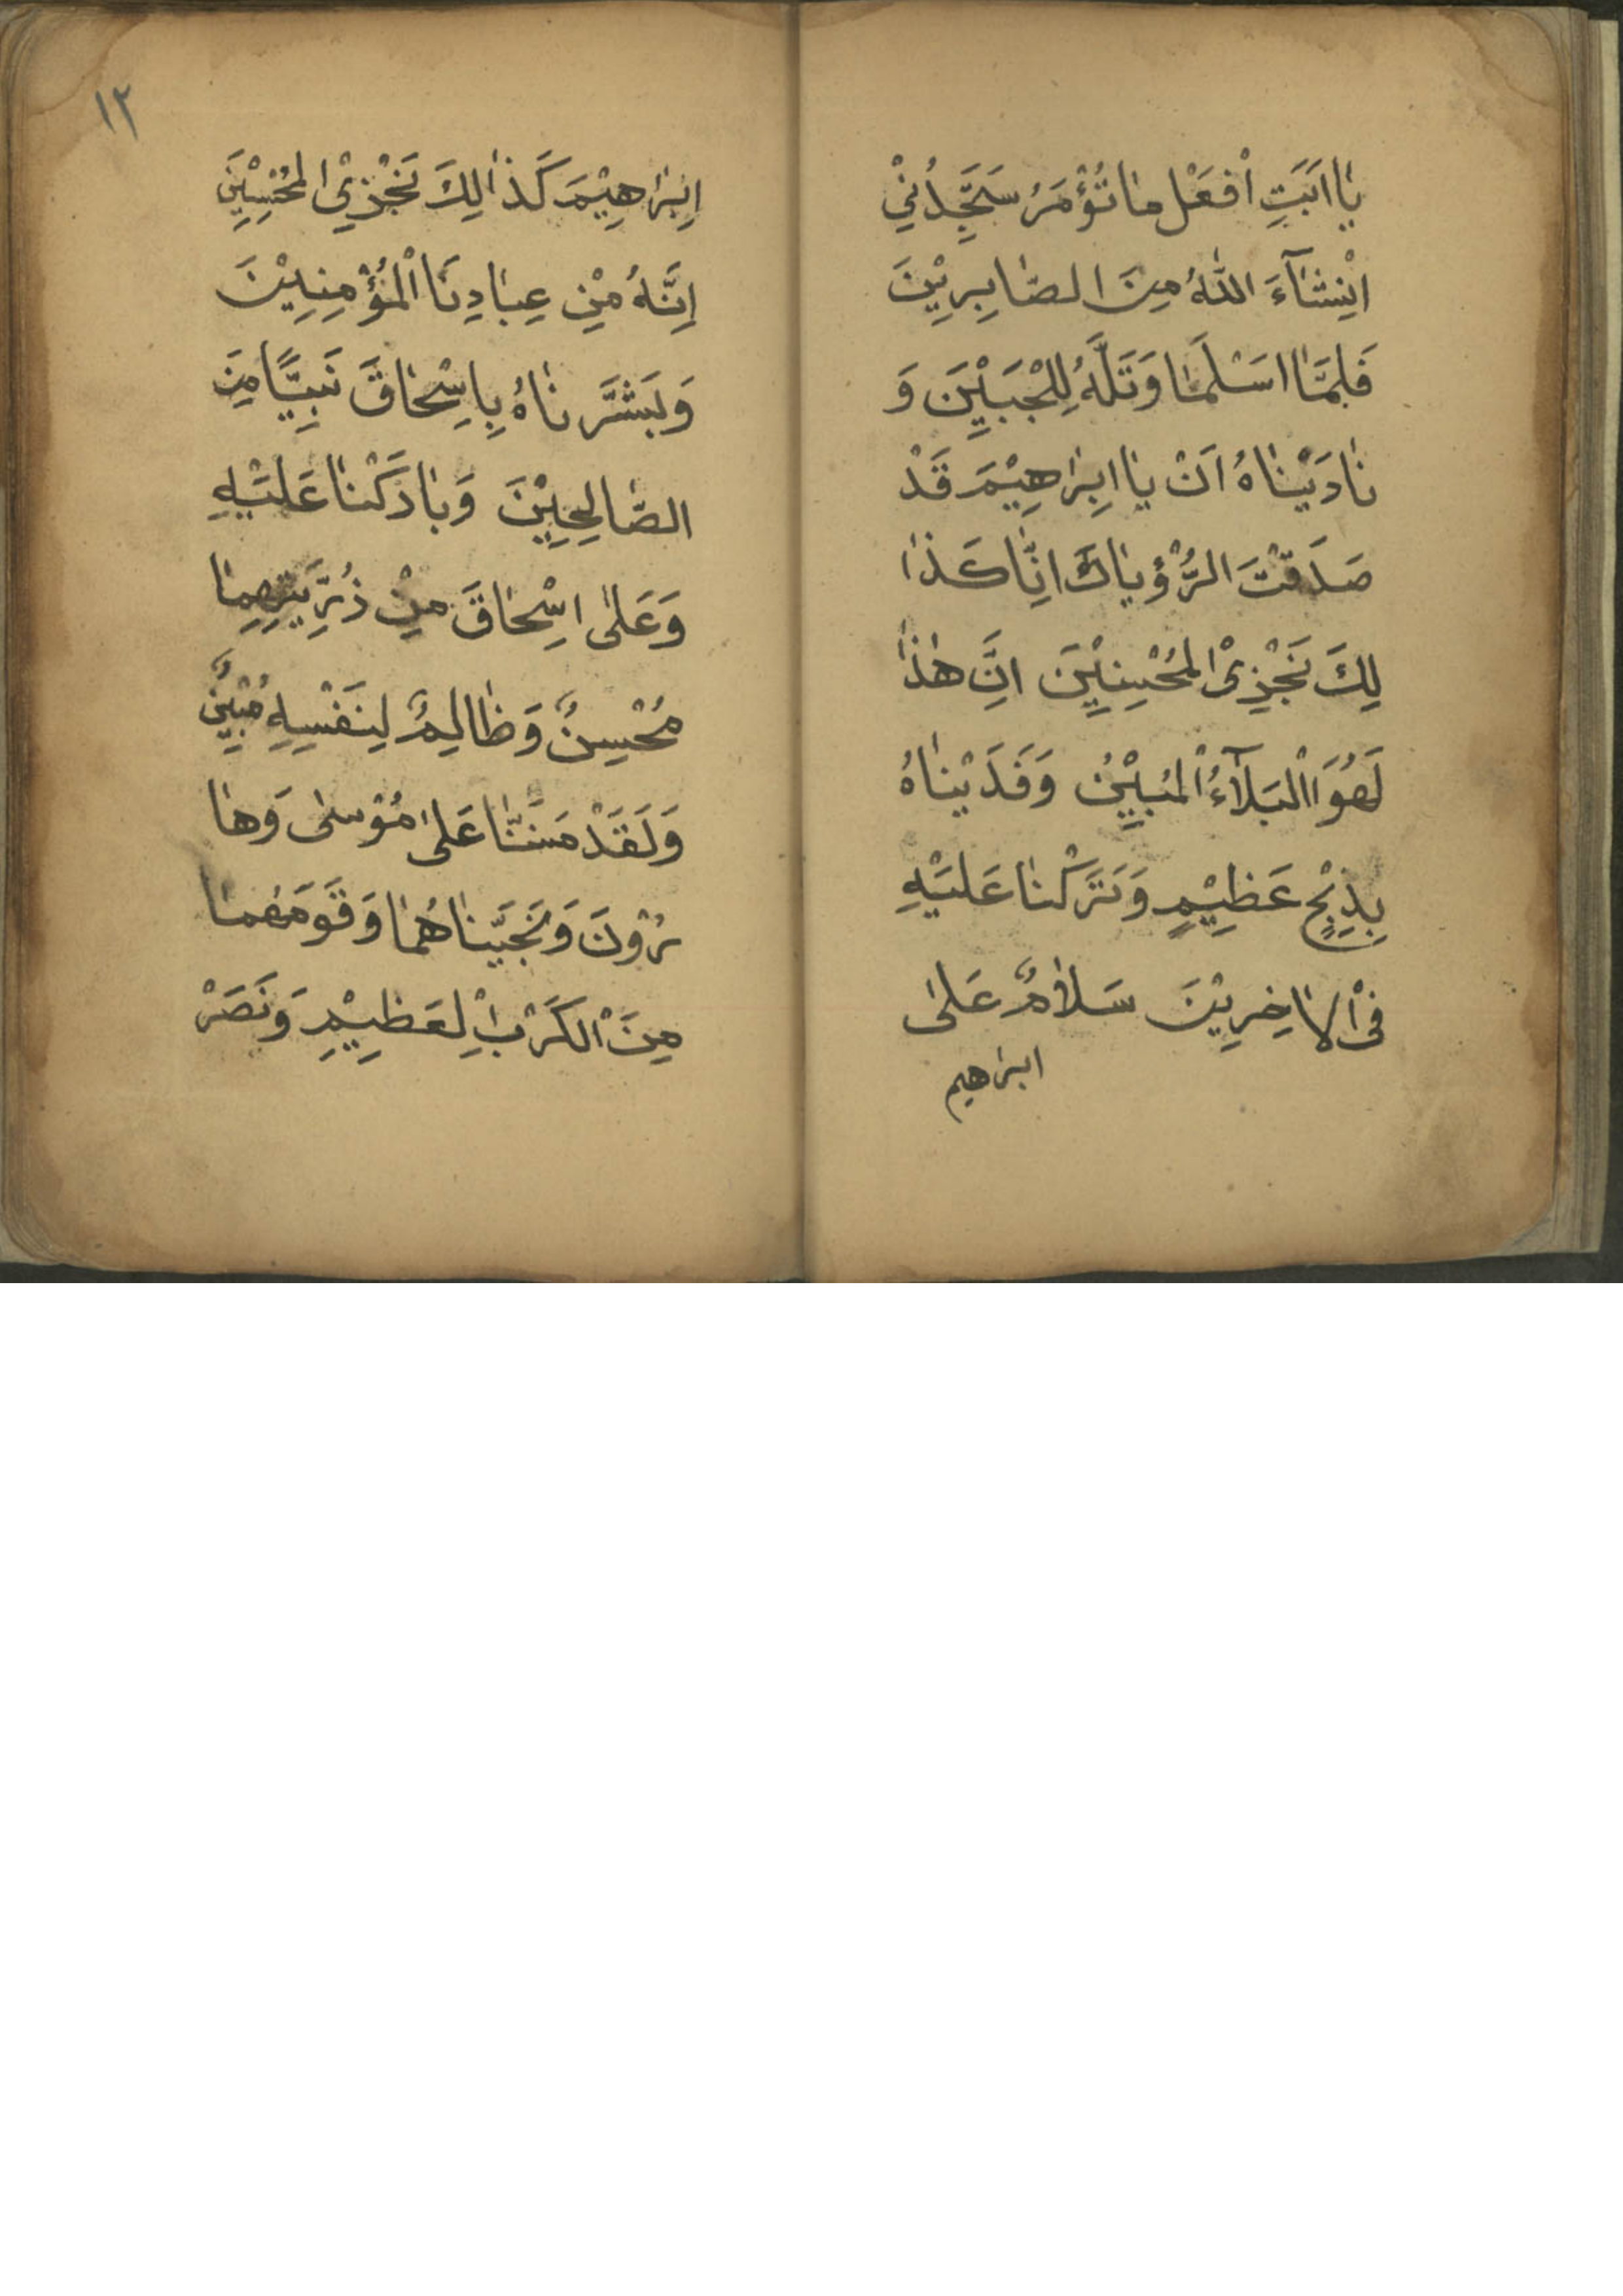 يَا اَبَتِ اْفعَلْ مَا تُؤْمَرُ سَتَجِدُنِيْ
اِنْشَآءَ اللهُ مِنَ الصَّابِرِيْنَ
فَلَمَّا اَسْلَمَا وَتَلَّهُ لِلْجَبَيْنِ وَ
نَادَيْنَاهُ اَنْ يَا اِبرَاهِيْمَ قَدْ
صَدَقْتَ الرُّؤْيَاكَ اِنَّا كَذَا
لِكَ نَجْزِىْ المُحْسِنِيْنَ اِنَّ هٰذَا
لَهُوَ اْلبَلَآءُ اْلمُبِيْنُ وَفَدَيْنَاهُ
بِذِبْحٍ عَظِيْمٍ وَتَرَكْنَا عَلَيْهِ
فِىْ الاٰخِرِيْنَ سَلَامٌ عَلىٰ
ابراهيم
١٢
اِبْرَاهِيْمَ كَذَالِكَ نَجْزِىْ المُحْسِنِيْنَ
اِنَّهُ مِنْ عِبَادِنَا اْلمُؤْمِنِيْنَ
وَبَشَّرنَاهُ بِاِسْحَاقَ نَبِيًّا مِنَ
الصَّالِحِيْنَ وَبَارَكْنَا عَلَيْهِ
وَعَلىٰ اِسْحَاقَ مِنْ ذُرِّيَتِهِمَا
مُحْسِنٌ وَظَالِمٌ لِنَفْسِهِ مُبِيْنٌ
وَلَقَدْ مَنَنَّا عَلىٰ مُوْسىٰ وَهَا
رُوْنَ وَنَجَّيْنَاهُمَا وَقَوْمَهُمَا
مِنَ اْلكَرْبِ اْلعَظِيْمِ وَنَصَرْ